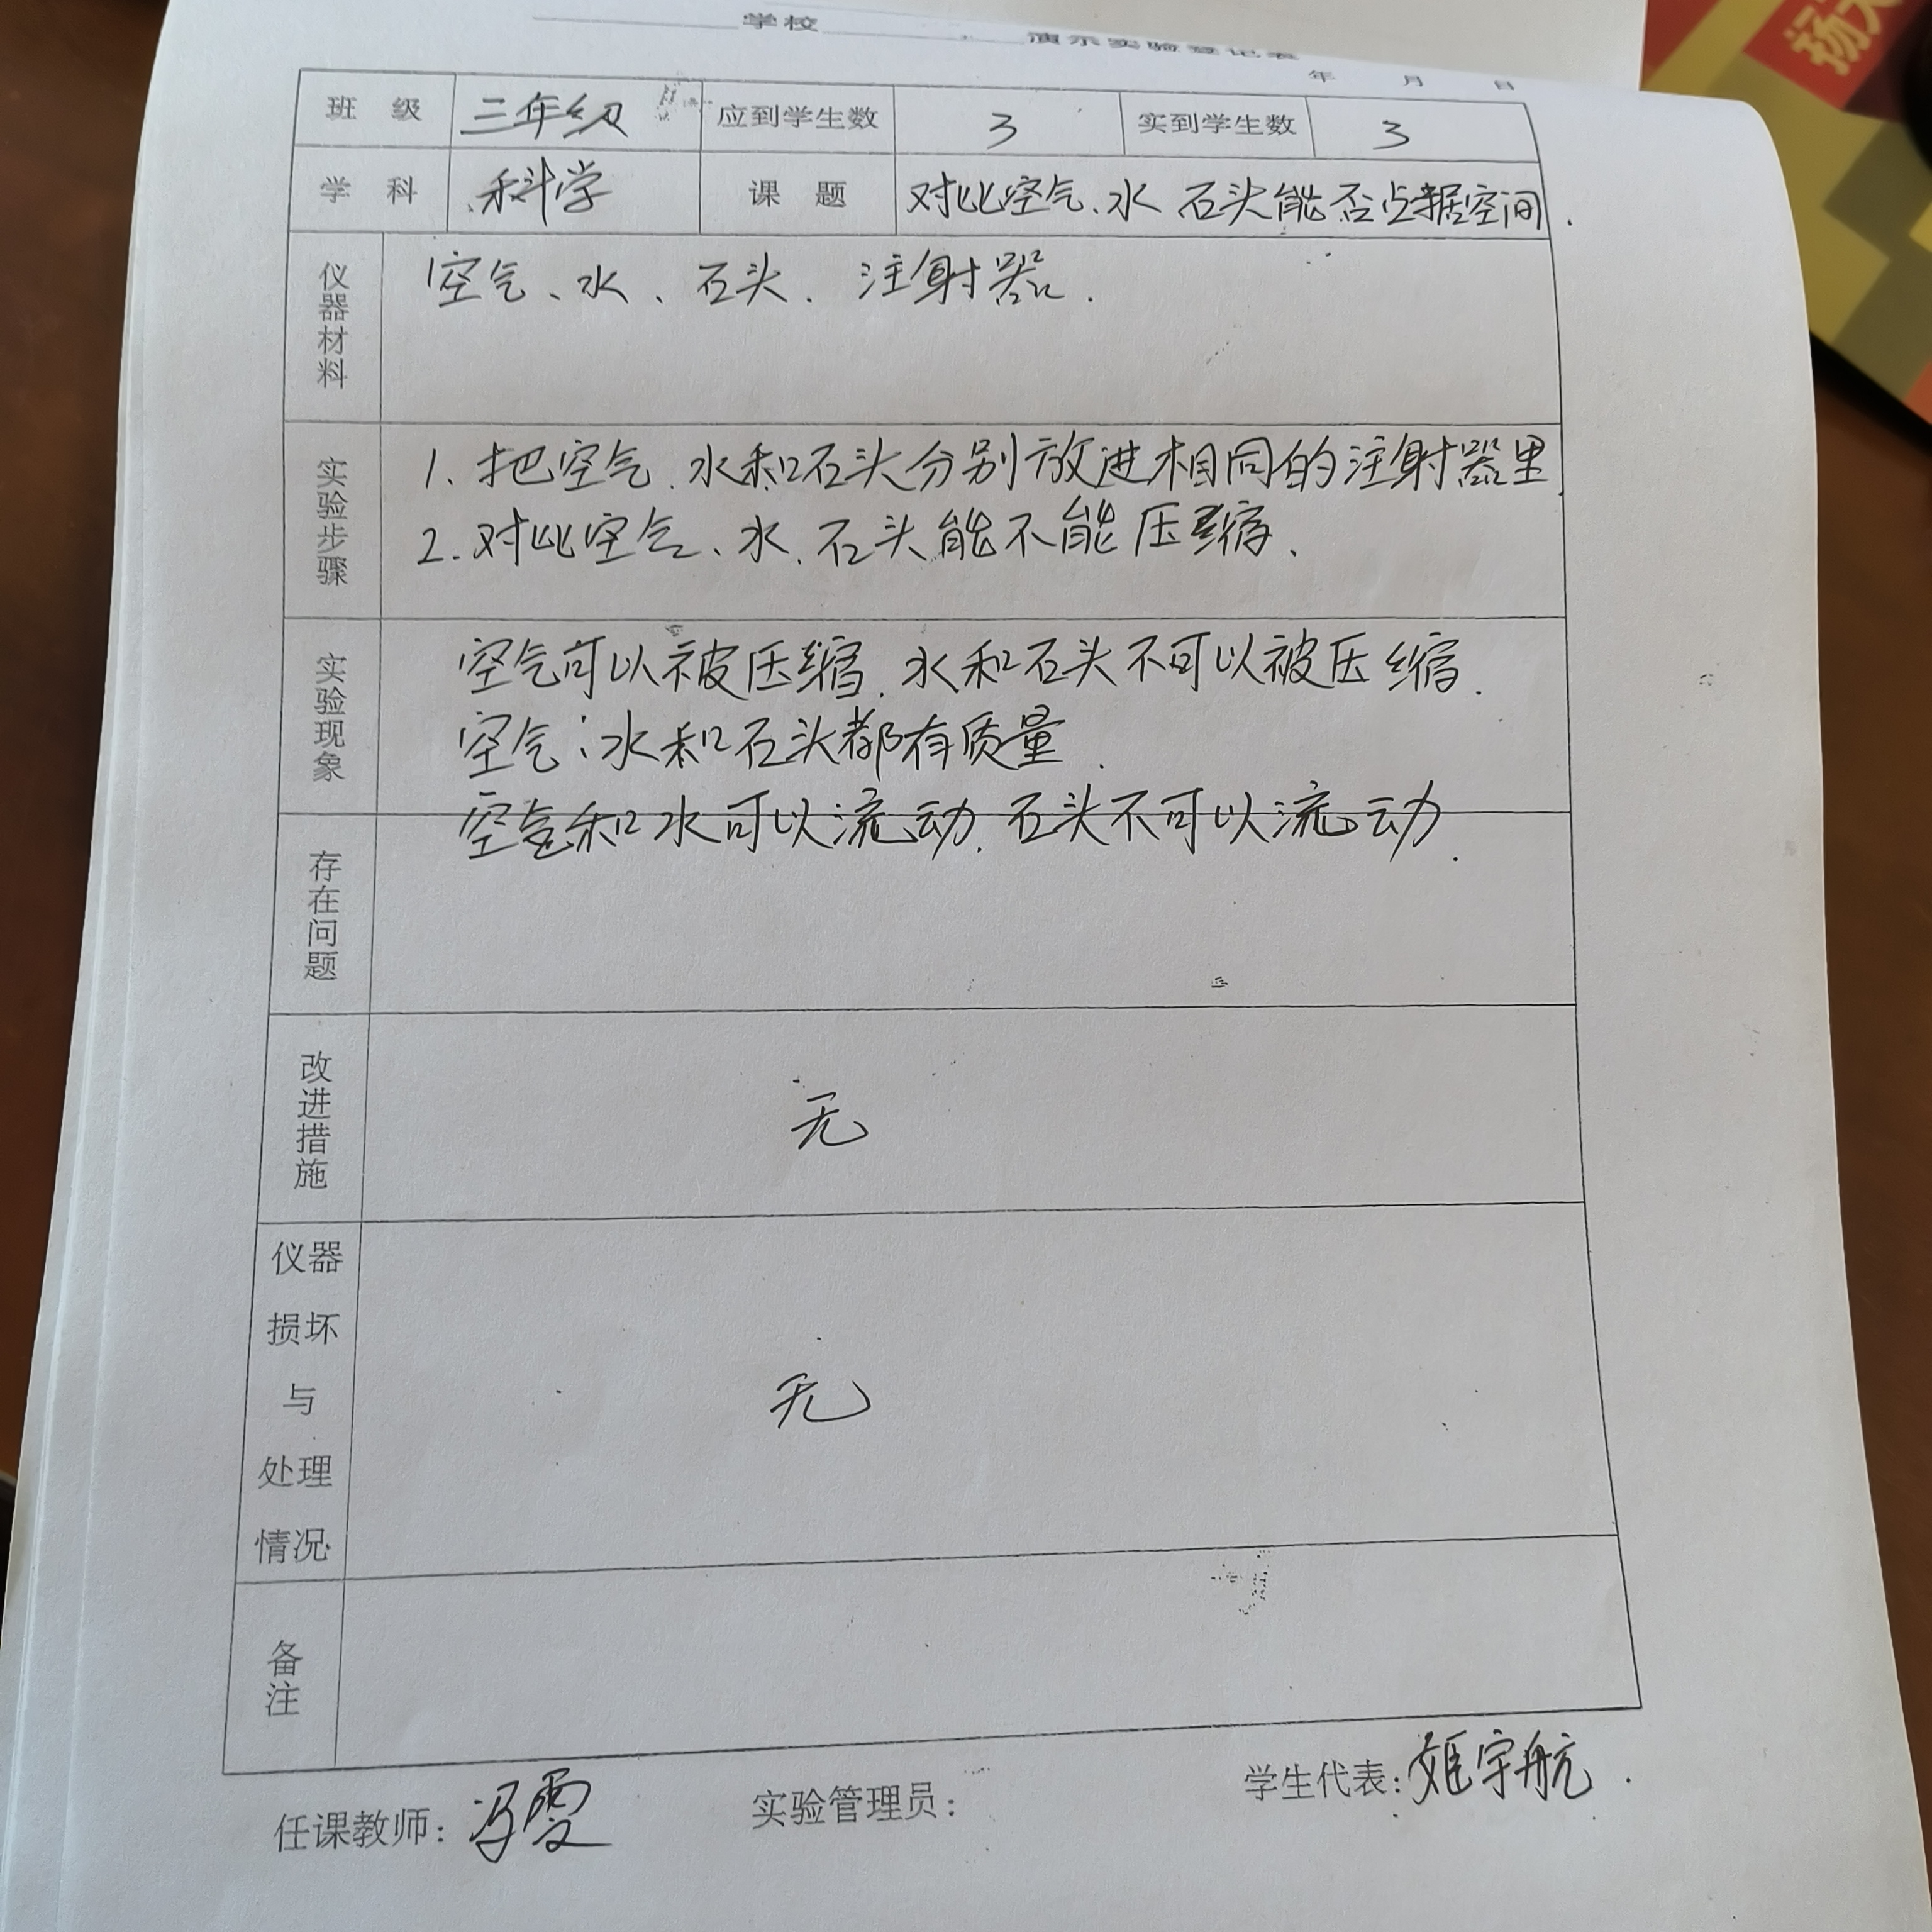 学校 演示实验登记表
年 月 日
班 级 三年级 应到学生数 3 实到学生数 3
学 科 科学 课 题 对比空气、水 石头能否占据空间.
仪器材料 空气、水、石头、注射器.
实验步骤 1. 把空气、水和石头分别放进相同的注射器里
2. 对比空气、水、石头能不能压缩.
实验现象 空气可以被压缩,水和石头不可以被压缩.
空气、水和石头都有质量.
空气和水可以流动,石头不可以流动.
存在问题
改进措施 无
仪器
损坏
与
处理
情况
无
备注
任课教师: 冯雯 实验管理员: 学生代表: 姬宇航.
扬